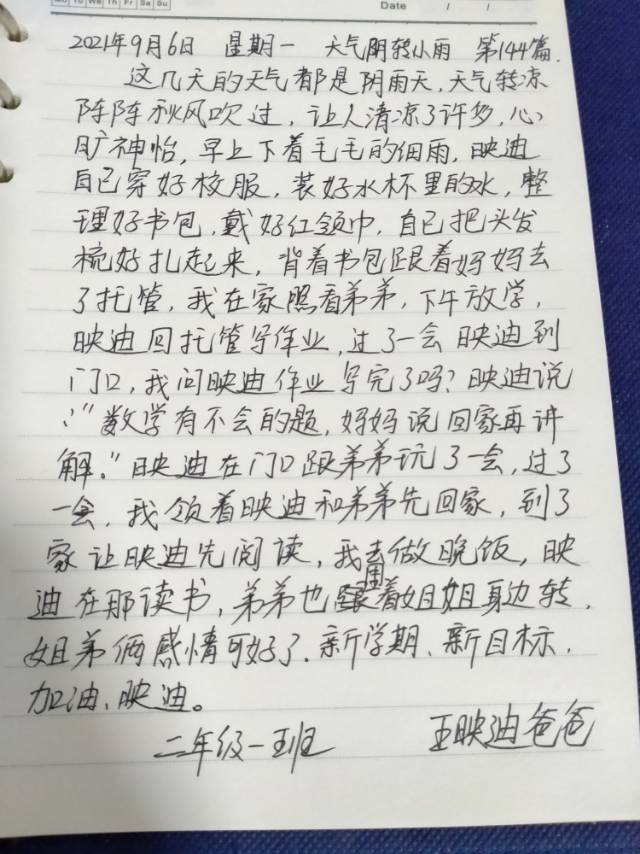 Mo Tu We Th Fr Sa Su
Date / /
2021年9月6日 星期一 天气阴转小雨 第144篇.
这几天的天气都是阴雨天,天气转凉
阵阵秋风吹过,让人清凉了许多,心
旷神怡,早上下着毛毛的细雨,映迪
自己穿好校服,装好水杯里的水,整
理好书包,戴好红领巾,自己把头发
梳好扎起来,背着书包跟着妈妈去
了托管,我在家照看弟弟,下午放学,
映迪回托管写作业,过了一会映迪到
门口,我问映迪作业写完了吗?映迪说
:"数学有不会的题,妈妈说回家再讲
解."映迪在门口跟弟弟玩了一会,过了
一会,我领着映迪和弟弟先回家,到了
家让映迪先阅读,我去做晚饭,映
迪在那读书,弟弟也围着姐姐身边转,
姐弟俩感情可好了.新学期、新目标,
加油、映迪。
二年级一班 王映迪爸爸